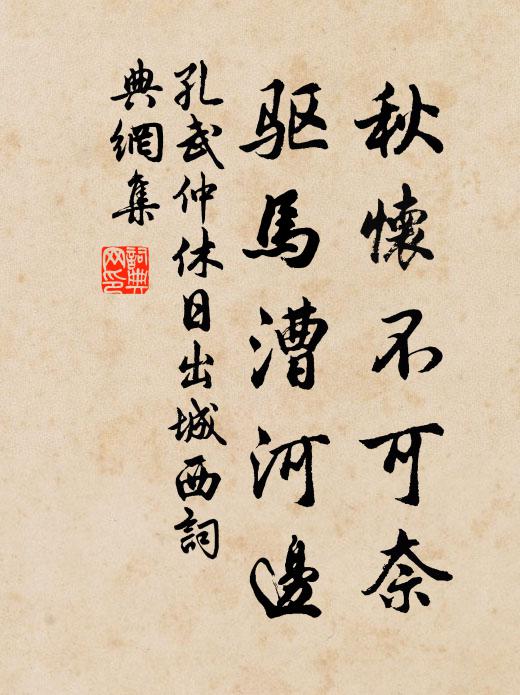 秋懷不可奈
驱馬漕河邊
孔武仲休日出城西詞
典網集
詞典
网印